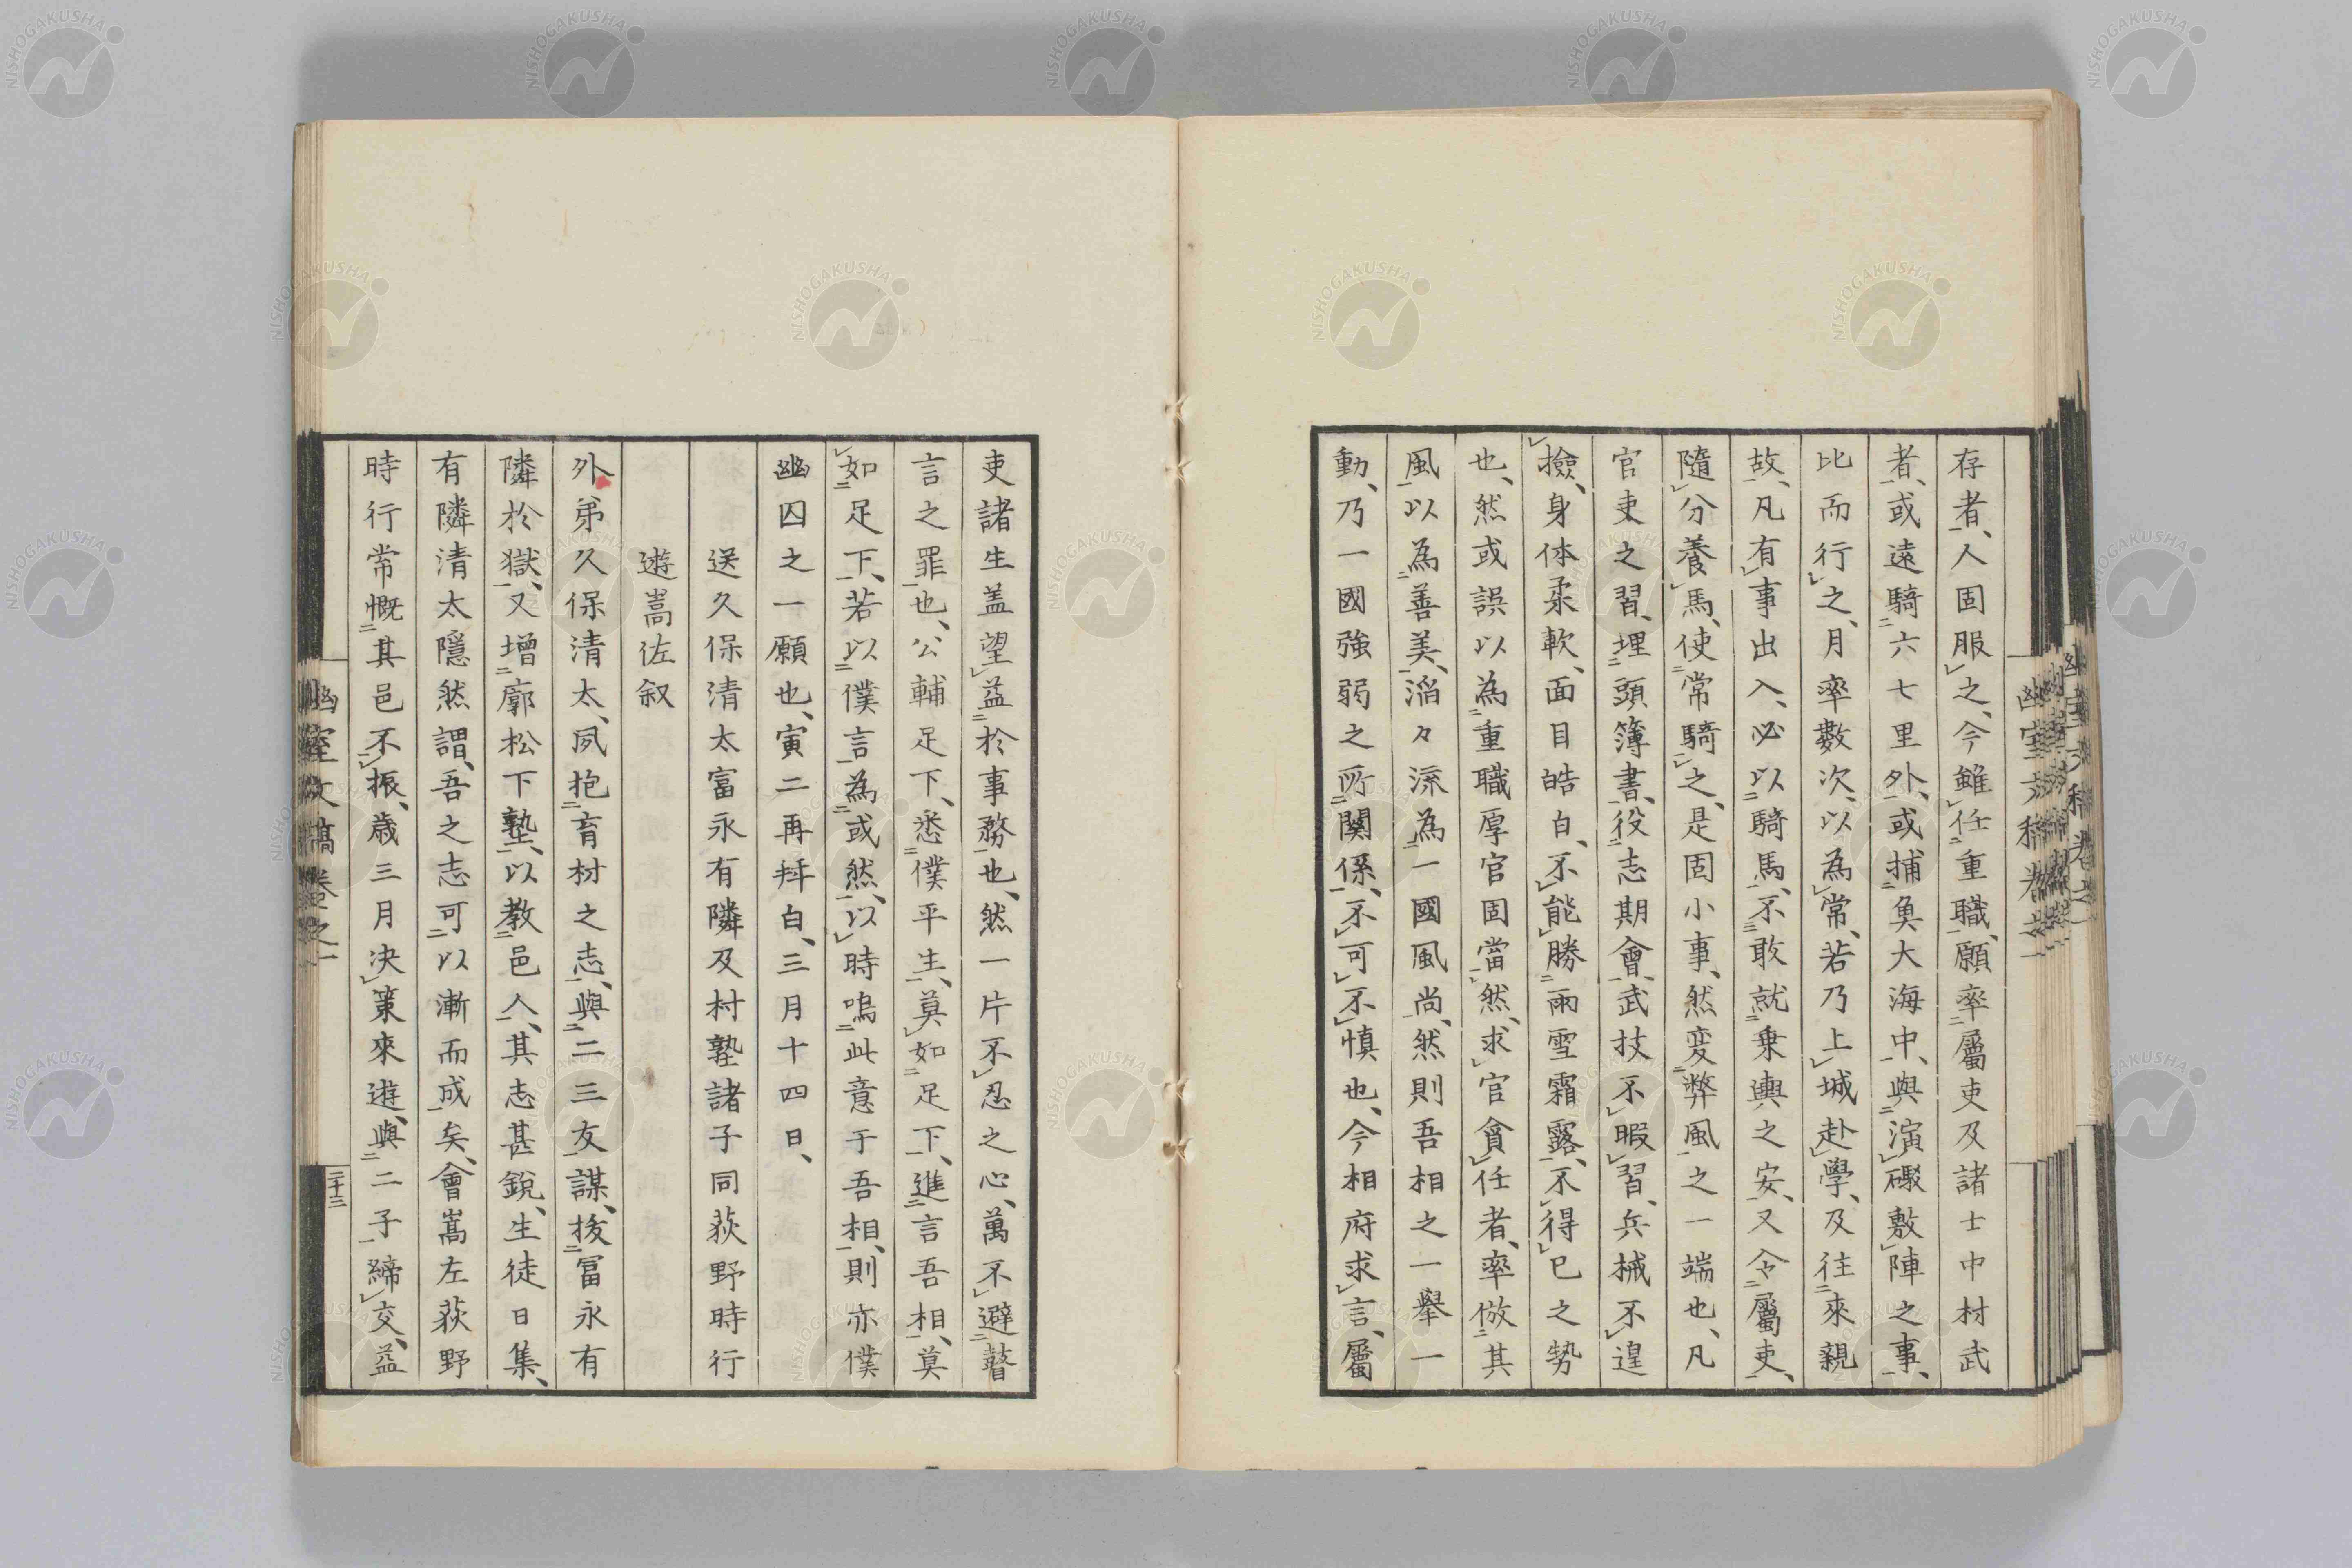 存者、人固服之、今雖任重職、願率屬吏及諸士中村武
者、或遠騎六七里外、或捕魚大海中、與演礮敷陣之事、
比而行之、月率數次、以為常、若乃上城赴學、及往來親
故、凡有事出入、必以騎馬、不敢就乗輿之安、又令屬吏、
隨分養馬、使常騎之、是固小事、然変弊風之一端也、凡
官吏之習、埋頭簿書、役志期會、武技不暇習、兵械不遑
撿、身体柔軟、面目皓白、不能勝雨雪霜露、不得已之勢
也、然或誤以為重職厚官固當然、求官貪任者、率倣其
風以為善美、滔々流為一國風尚、然則吾相之一舉一
動、乃一國強弱之所關係、不可不慎也、今相府求言、屬
吏諸生盖望益於事務也、然一片不忍之心、萬不避瞽
言之罪也、公輔足下、悉僕平生、莫如足下、進言吾相、莫
如足下、若以僕言為或然、以時嗚此意于吾相、則亦僕
幽囚之一願也、寅二再拜白、三月十四日、
送久保清太富永有隣及村塾諸子同荻野時行
遊嵩佐叙
外弟久保清太、夙抱育材之志、與二三友謀、拔冨永有
隣於獄、又增廓松下塾、以教邑人、其志甚銳、生徒日集、
有隣清太隱然謂、吾之志可以漸而成矣、會嵩左荻野
時行常慨其邑不振、歲三月决策來遊、與二子締交、益
幽室文稿卷之一
二十三